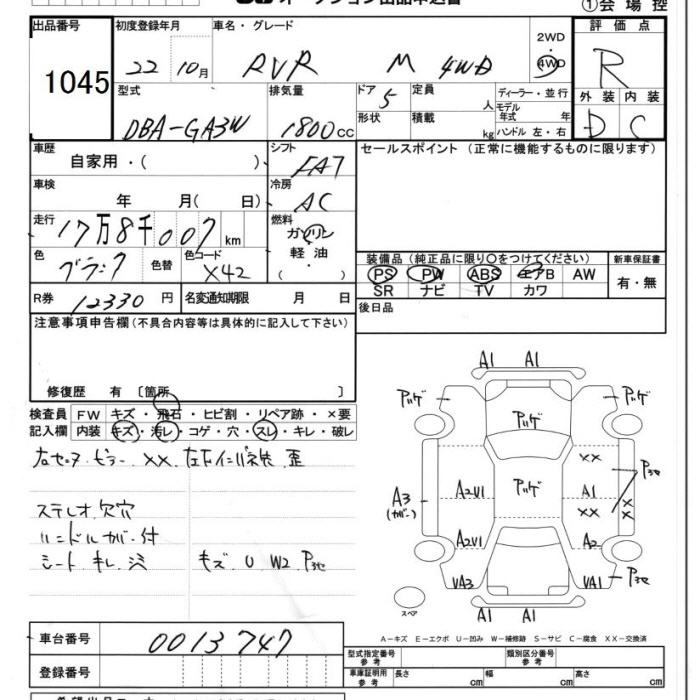 ①会場控
出品番号 初度登録年月 車名・グレード 2WD 評価点
1045 22 10月 RVR M 4WD ・ 4WD R
型式 排気量 ドア 定員 ディーラー・並行 外装 内装
DBA-GA3W 1800cc 5 人 モデル年式 年 D C
形状 積載 kg ハンドル 左・右
車歴 シフト セールスポイント(正常に機能するものに限ります)
自家用・( )・ FAT
車検 冷房
年 月( 日) AC
走行 燃料
17万8千007km ガソリン
色 色替 色コード 軽油 装備品(純正品に限り〇をつけてください) 新車保証書
ブラック X42 ・( ) PS PW ABS エアB AW 有・無
SR ナビ TV カワ
R券 12330円 名変通知期限 月 日 後日品
注意事項申告欄(不具合内容等は具体的に記入して下さい)
修復歴 有〔箇所 〕
検査員 FW キズ・飛石・ヒビ割・リペア跡・×要
記入欄 内装 キズ・汚レ・コゲ・穴・スレ・キレ・破レ
右センターピラー XX 歪
ステレオ欠穴
ハンドルカバー付
シートキレ キズ U W2
A1 A1
XX
A3 A2V1 A1
(カバー) XX X
A2V1 A2
VA3 VA1
スペア A1 A1
A-キズ E-エクボ U-凹み W-補修跡 S-サビ C-腐食 XX-交換済
車台番号 0013747 型式指定番号 参考 類別区分番号 参考
登録番号 車庫証明用 参考 長さ cm 幅 cm 高さ cm